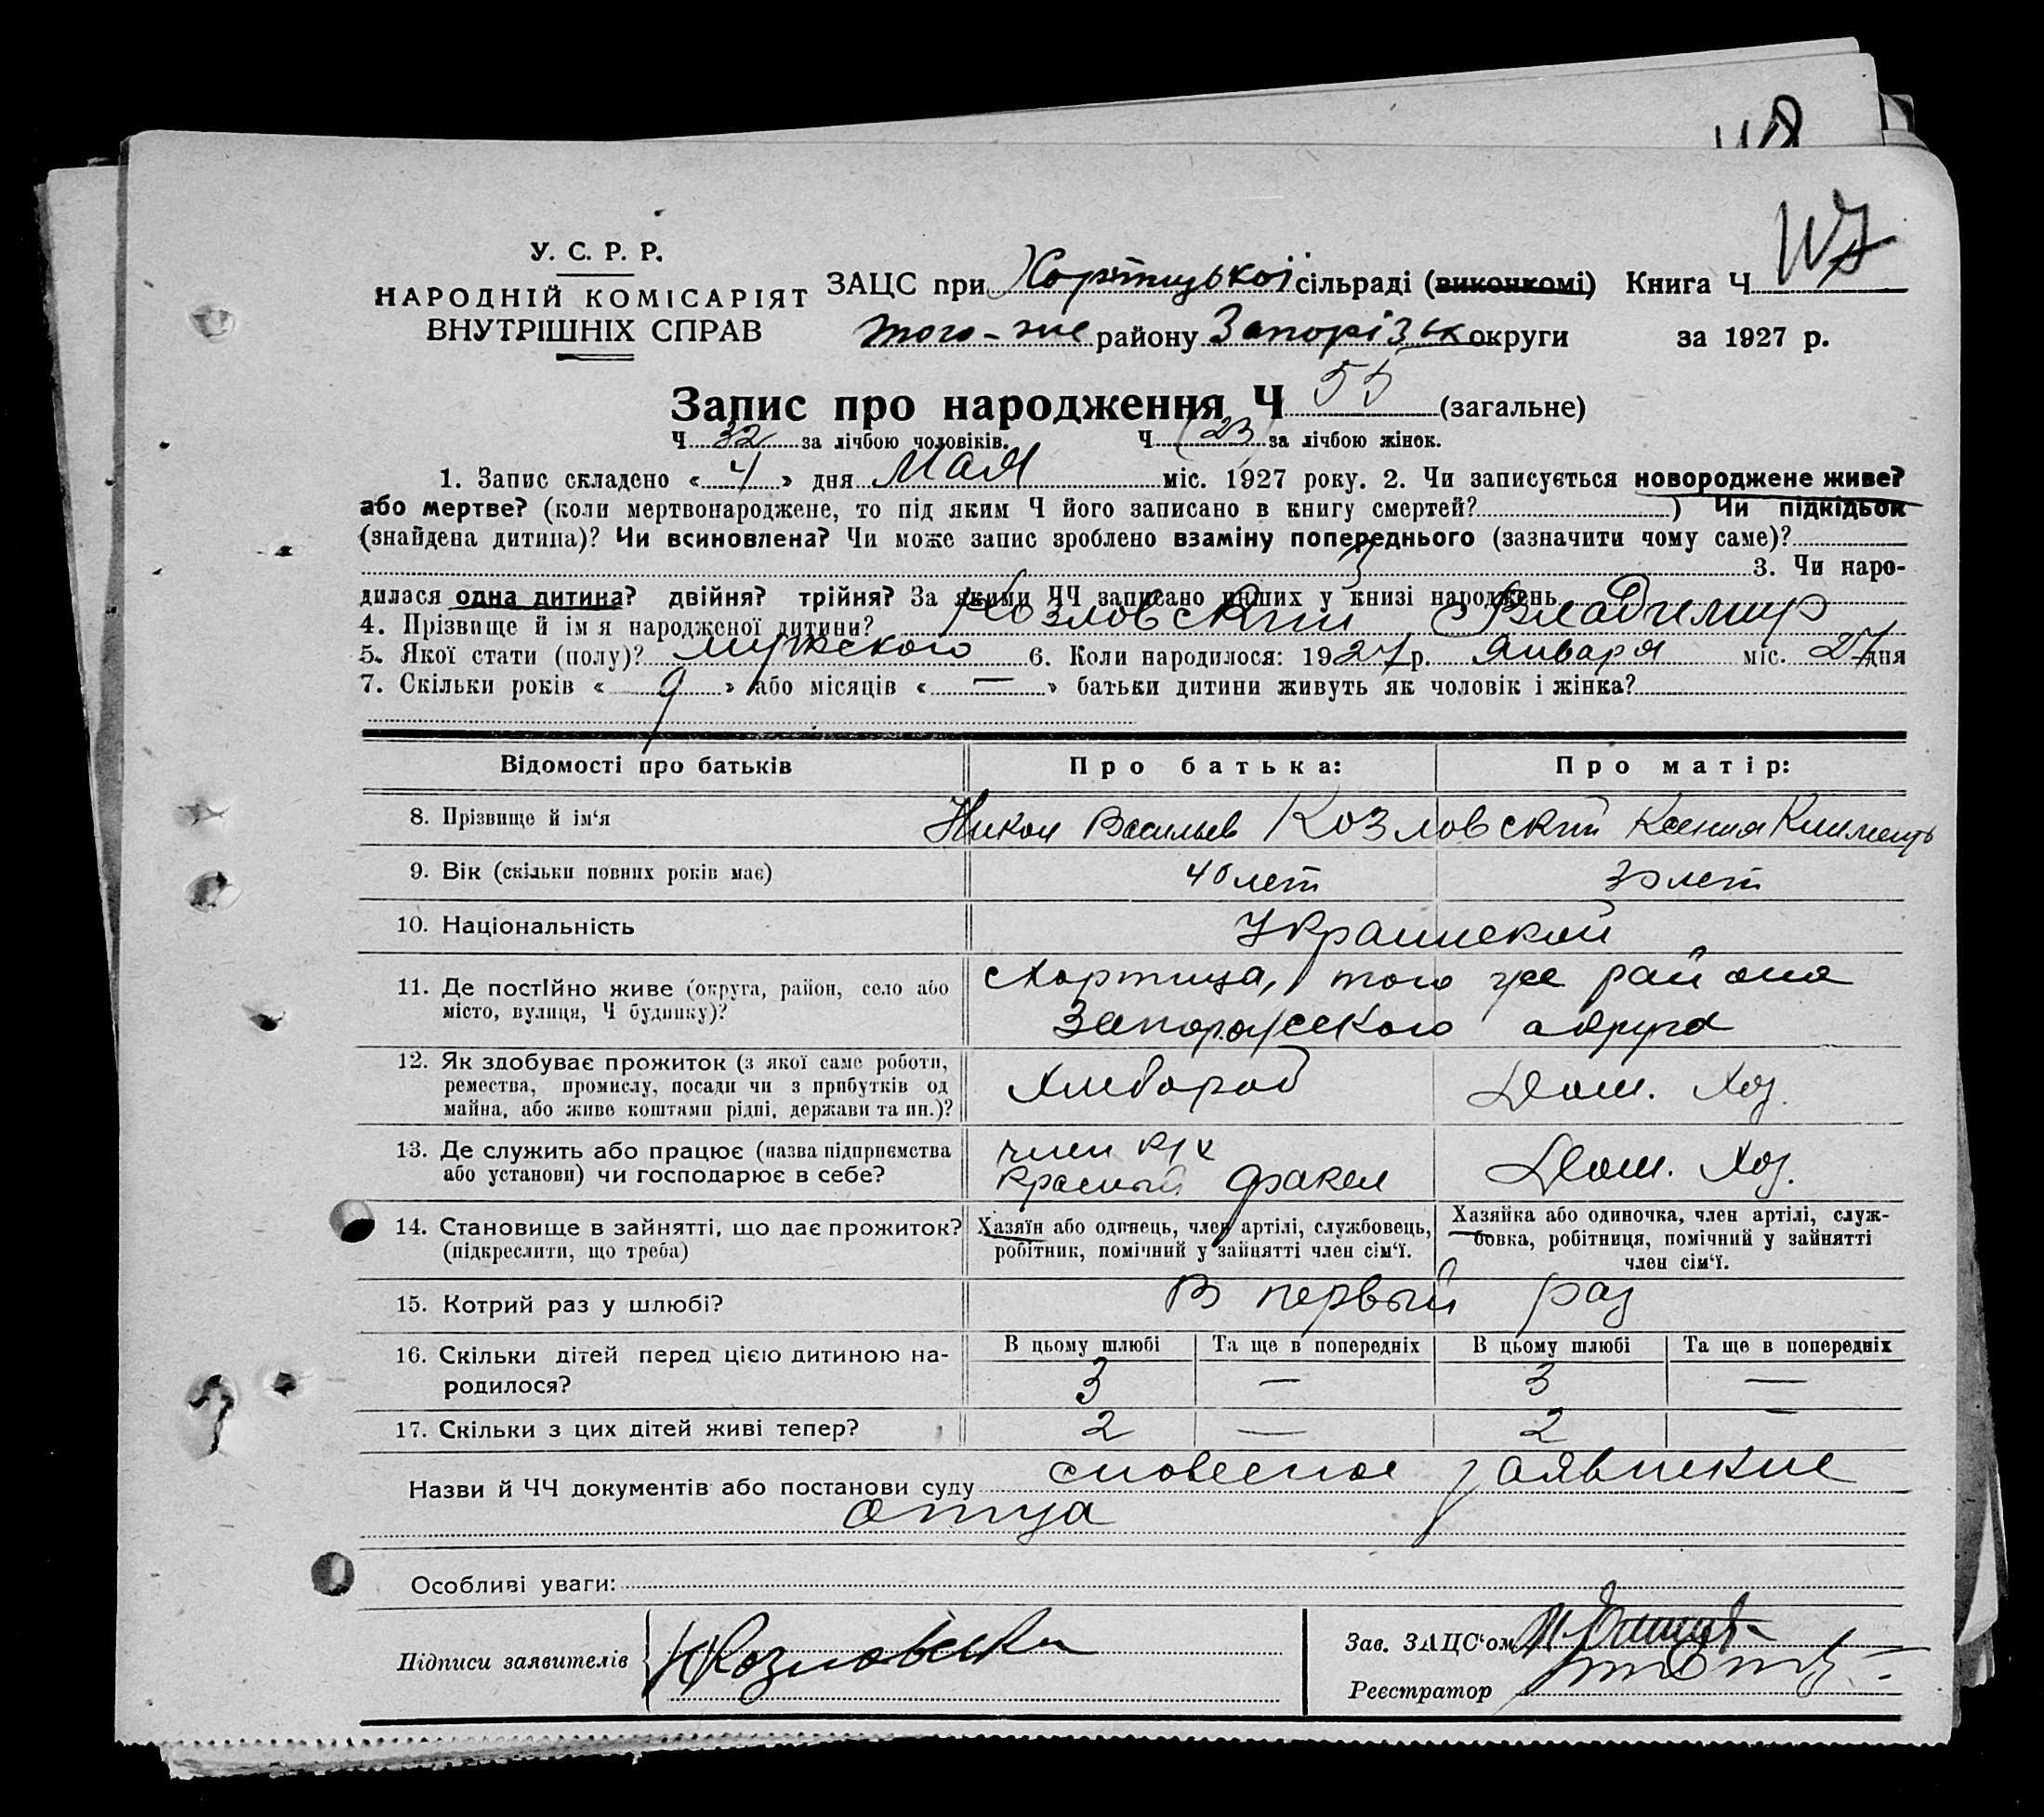 У. С. Р. Р.
НАРОДНІЙ КОМІСАРІЯТ
ВНУТРІШНІХ СПРАВ
ЗАЦС при Хортицької сільраді (виконкомі) Книга Ч
того-же району Запорізьк округи за 1927 р.
Запис про народження Ч 55 (загальне)
Ч 32 за лічбою чоловіків. Ч (23) за лічбою жінок.
1. Запис складено « 4 » дня мая міс. 1927 року. 2. Чи записується новороджене живе?
або мертве? (коли мертвонароджене, то під яким Ч його записано в книгу смертей? ) Чи підкідьок
(знайдена дитина)? Чи всиновлена? Чи може запис зроблено взаміну попереднього (зазначити чому саме)?
3. Чи наро-
дилася одна дитина? двійня? трійня? За якими ЧЧ записано инших у книзі народжень
4. Прізвище й ім я народженої дитини? Козловский Владимир
5. Якої стати (полу)? мужского 6. Коли народилося: 1927 р. января міс. 27 дня
7. Скільки років « 9 » або місяців « — » батьки дитини живуть як чоловік і жінка?
Відомості про батьків Про батька: Про матір:
8. Прізвище й ім‘я Никон Васильев Козловский Ксения
9. Вік (скільки повних років має) 40 лет 30 лет
10. Національність Украинской
11. Де постійно живе (округа, район, село або
місто, вулиця, Ч будинку)?
Хортица, того же района
Запорожского округа
12. Як здобуває прожиток (з якої саме роботи,
ремества, промислу, посади чи з прибутків од
майна, або живе коштами рідні, держави та ин.)?
Хлебороб Дом. Хоз.
13. Де служить або працює (назва підприємства
або установи) чи господарює в себе?
член
Красный факел Дом. Хоз.
14. Становище в зайнятті, що дає прожиток?
(підкреслити, що треба)
Хазяїн або одинець, член артілі, службовець,
робітник, помічний у зайнятті член сім‘ї.
Хазяйка або одиночка, член артілі, служ-
бовка, робітниця, помічний у зайнятті
член сім‘ї.
15. Котрий раз у шлюбі? В первый раз
В цьому шлюбі Та ще в попередніх В цьому шлюбі Та ще в попередніх
16. Скільки дітей перед цією дитиною на-
родилося? 3 — 3 —
17. Скільки з цих дітей живі тепер? 2 — 2 —
Назви й ЧЧ документів або постанови суду словесное заявление
отца
Особливі уваги:
Підписи заявителів
Зав. ЗАЦС‘ом
Реєстратор